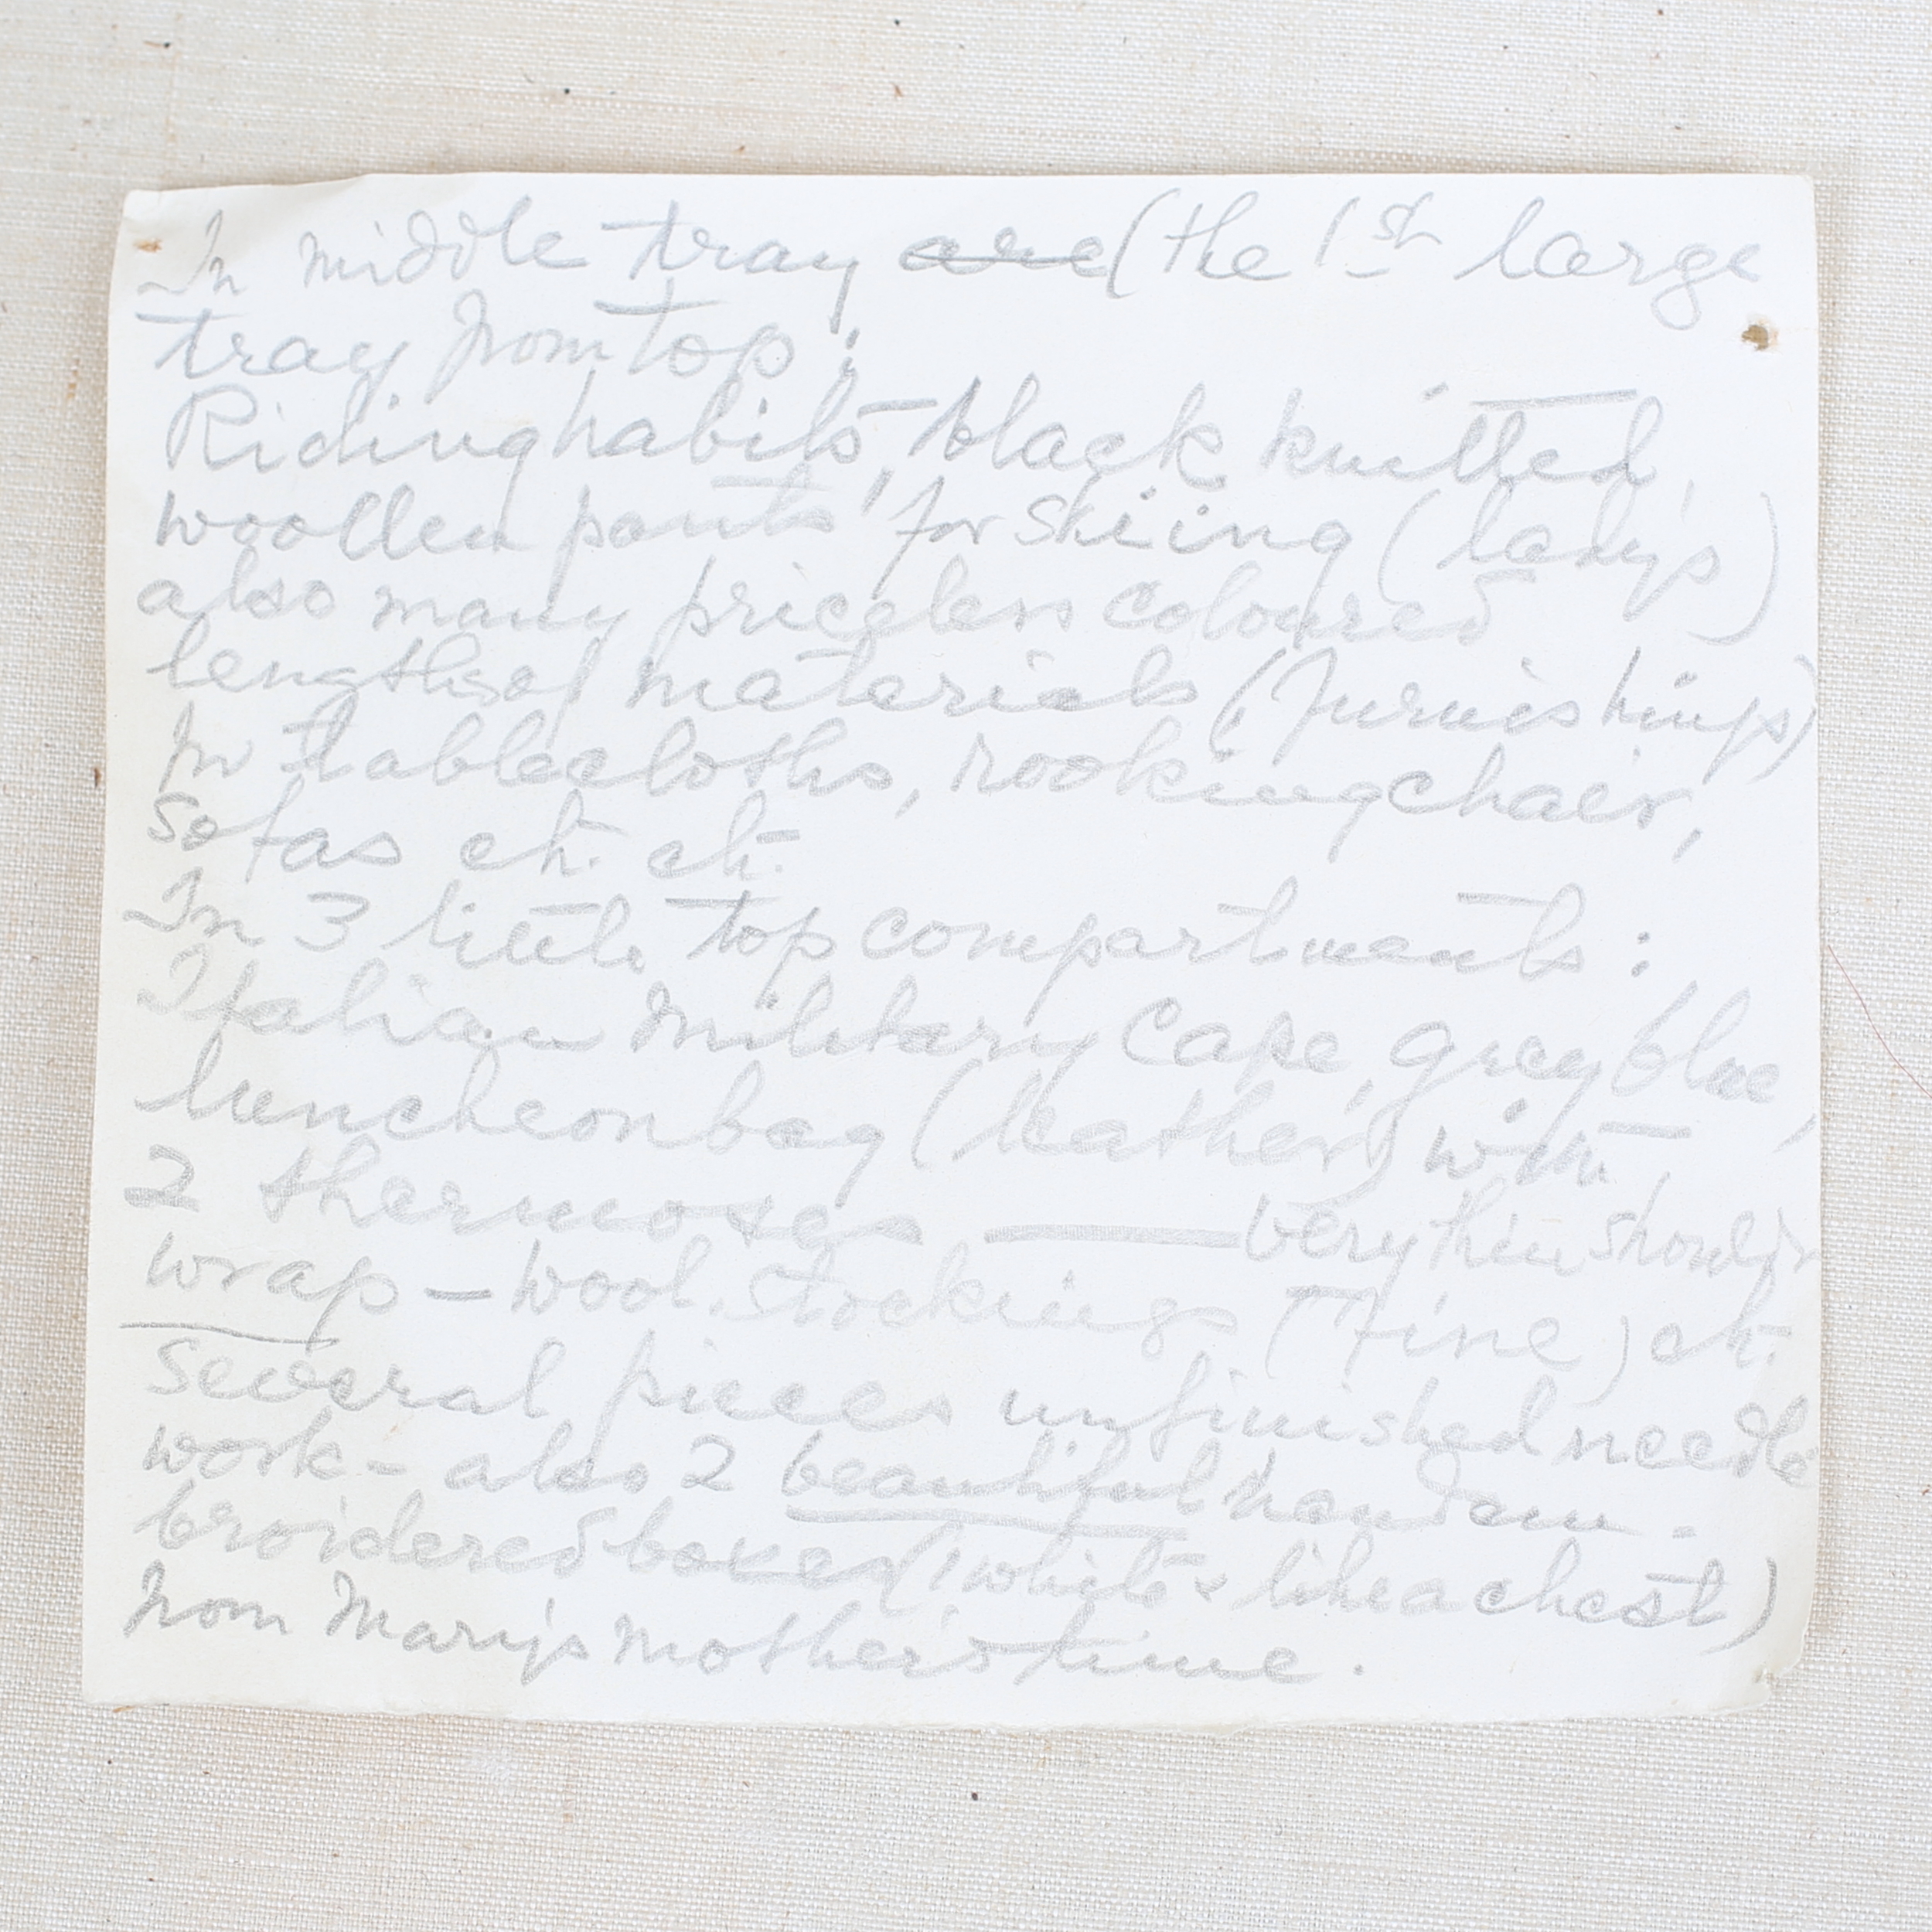 In middle tray are (the 1st large
tray from top:
Ridinghabits, black knitted,
woollen pants for skiing (lady's)
also many priceless coloured
lengths of materials (furnishings)
for tablecloths, rockingchair,
sofas etc. etc.
In 3 little top compartments:
Italian Military Cape, grey blue,
luncheonbag (leather) with
2 thermoses — very thin shoulder
wrap – wool. stockings (fine) etc.
Several pieces unfinished needle
work – also 2 beautiful handem-
broidered boxes (1 white & like a chest)
from Mary's mother's time.